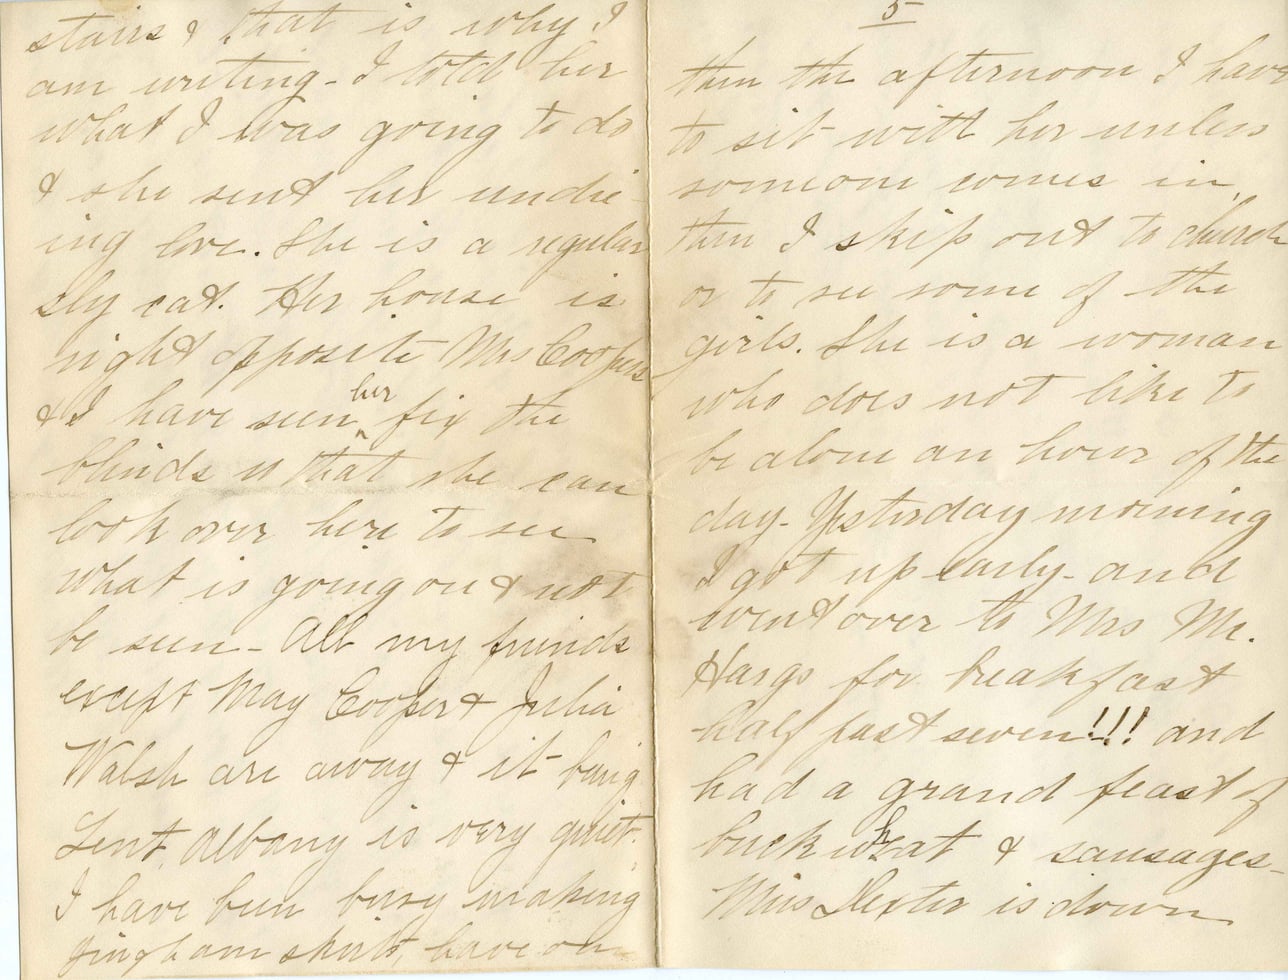 stairs & that is why I
am writing - I told her
what I was going to do
& she sent her undie-
ing love. She is a regular
sly cat. Her house is
right opposite Mrs Coopers
& I have seen her fix the
blinds so that she can
look over here to see
what is going on & not
be seen - All my friends
except May Cooper & Julia
Walsh are away & it being
Lent, Albany is very quiet.
I have been busy making
gingham skirts, have one
5
then the afternoon I have
to sit with her unless
someone comes in,
then I skip out to church
or to see some of the
girls. She is a woman
who does not like to
be alone an hour of the
day - Yesterday morning
I got up early - and
went over to Mrs Mc.
Hargs for breakfast
half past seven!!! and
had a grand feast of
buck wheat & sausages -
Miss Dexter is down